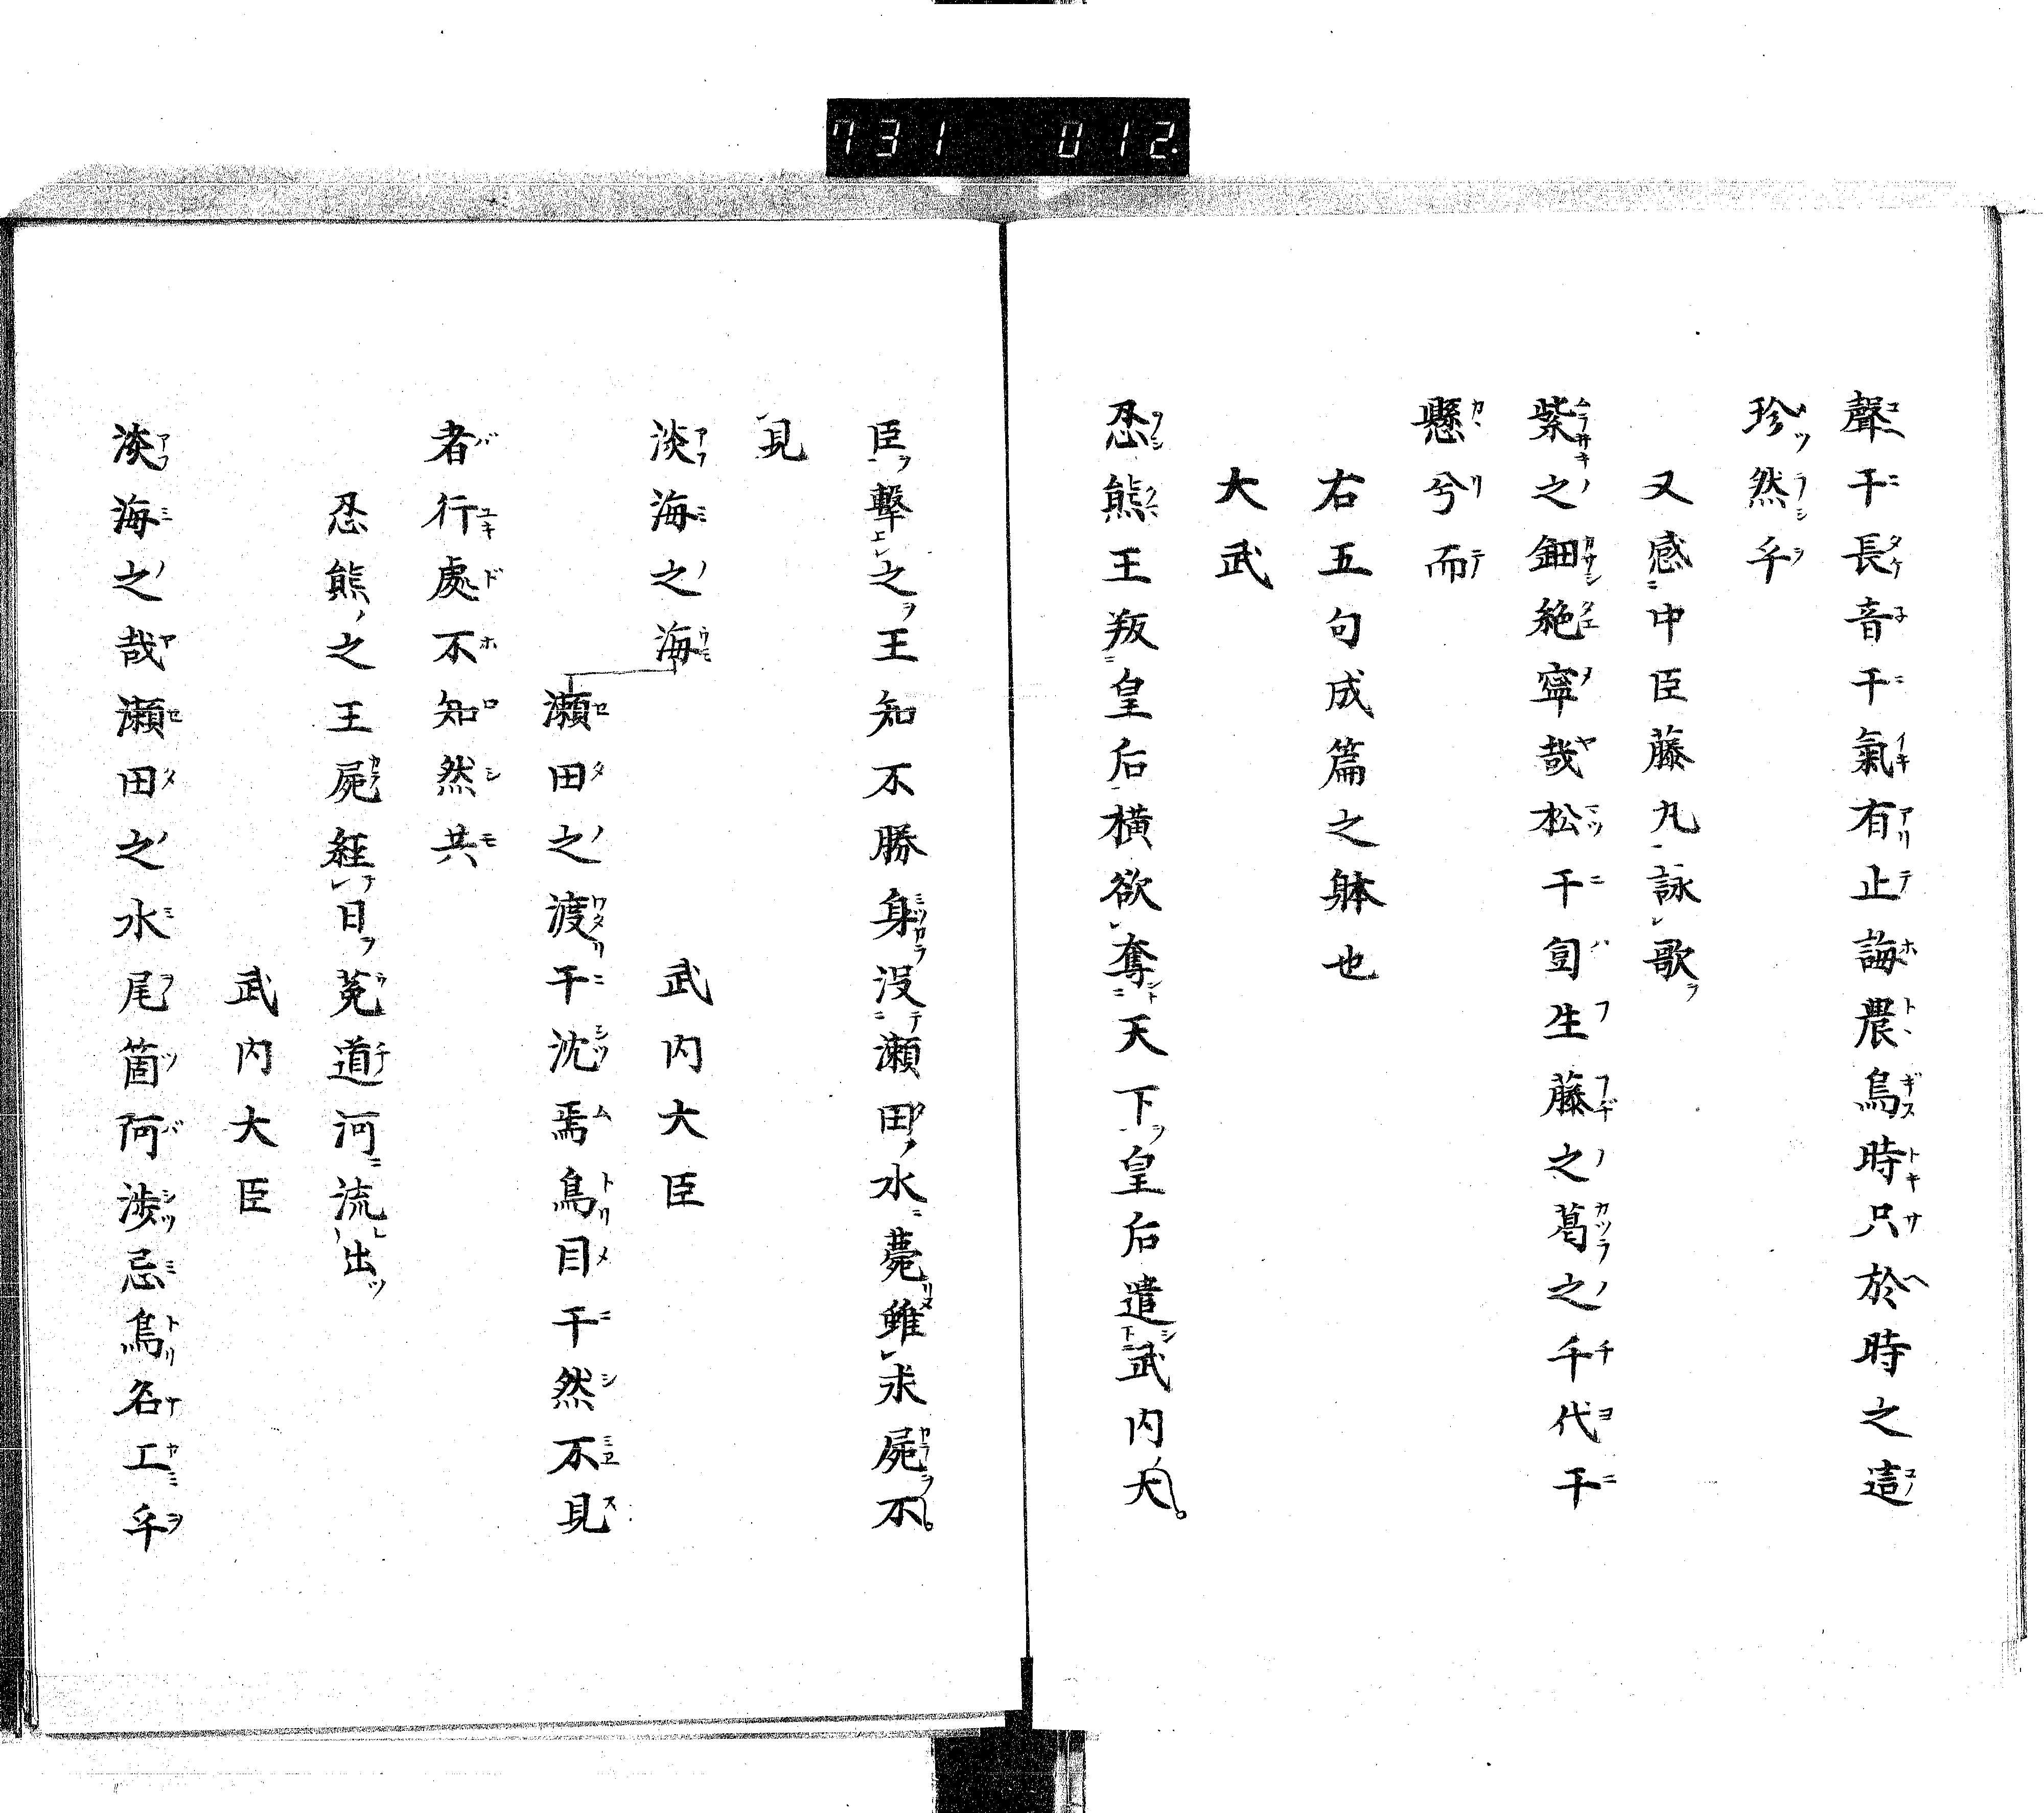 731 012
聲干長音干氣有止誨農鳥時只於時之這
珍然乎
又感中臣藤丸詠歌
紫之鈿絶寧哉松干匐生藤之葛之千代干
懸兮而
右五句成篇之躰也
大武
忍熊王叛皇后横欲奪天下皇后遣武内大
臣撃之王知不勝身没瀬田水薨雖求屍不
見
武内大臣
淡海之海瀬田之渡干沈焉鳥目干然不見
者行處不知然共
忍熊之王屍経日菟道河流出
武内大臣
淡海之哉瀬田之水尾箇阿渉忌鳥名工乎